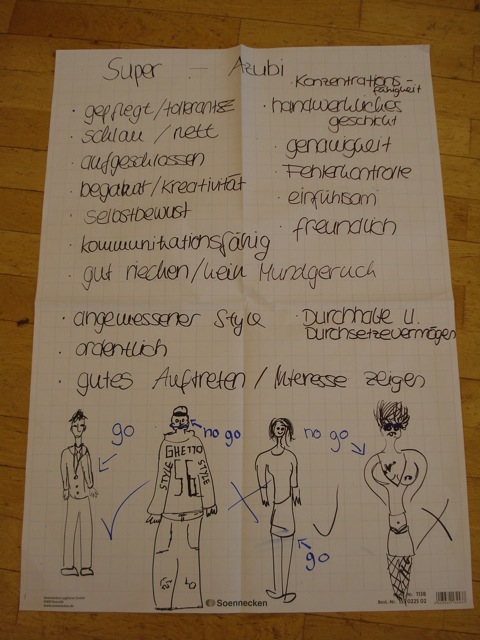 Super - Azubi
· gepflegt/toleranße
· schlau / nett
· aufgeschlossen
· begabat/Kreativität
· selbstbewust
· kommunikationsfähig
· gut riechen/kein Mundgeruch
· Konzentrations-
fähigkeit
· handwerkliches
geschickt
· genauigkeit
· Fehlerkontrolle
· einfühsam
· freundlich
· angemessener Style
· ordentlich
· Durchhalte u.
Durchsetzevermögen
· gutes Auftreten / Interesse zeigen
go
no go
no go
GHETTO
STYLE
STYLE
go
Soennecken